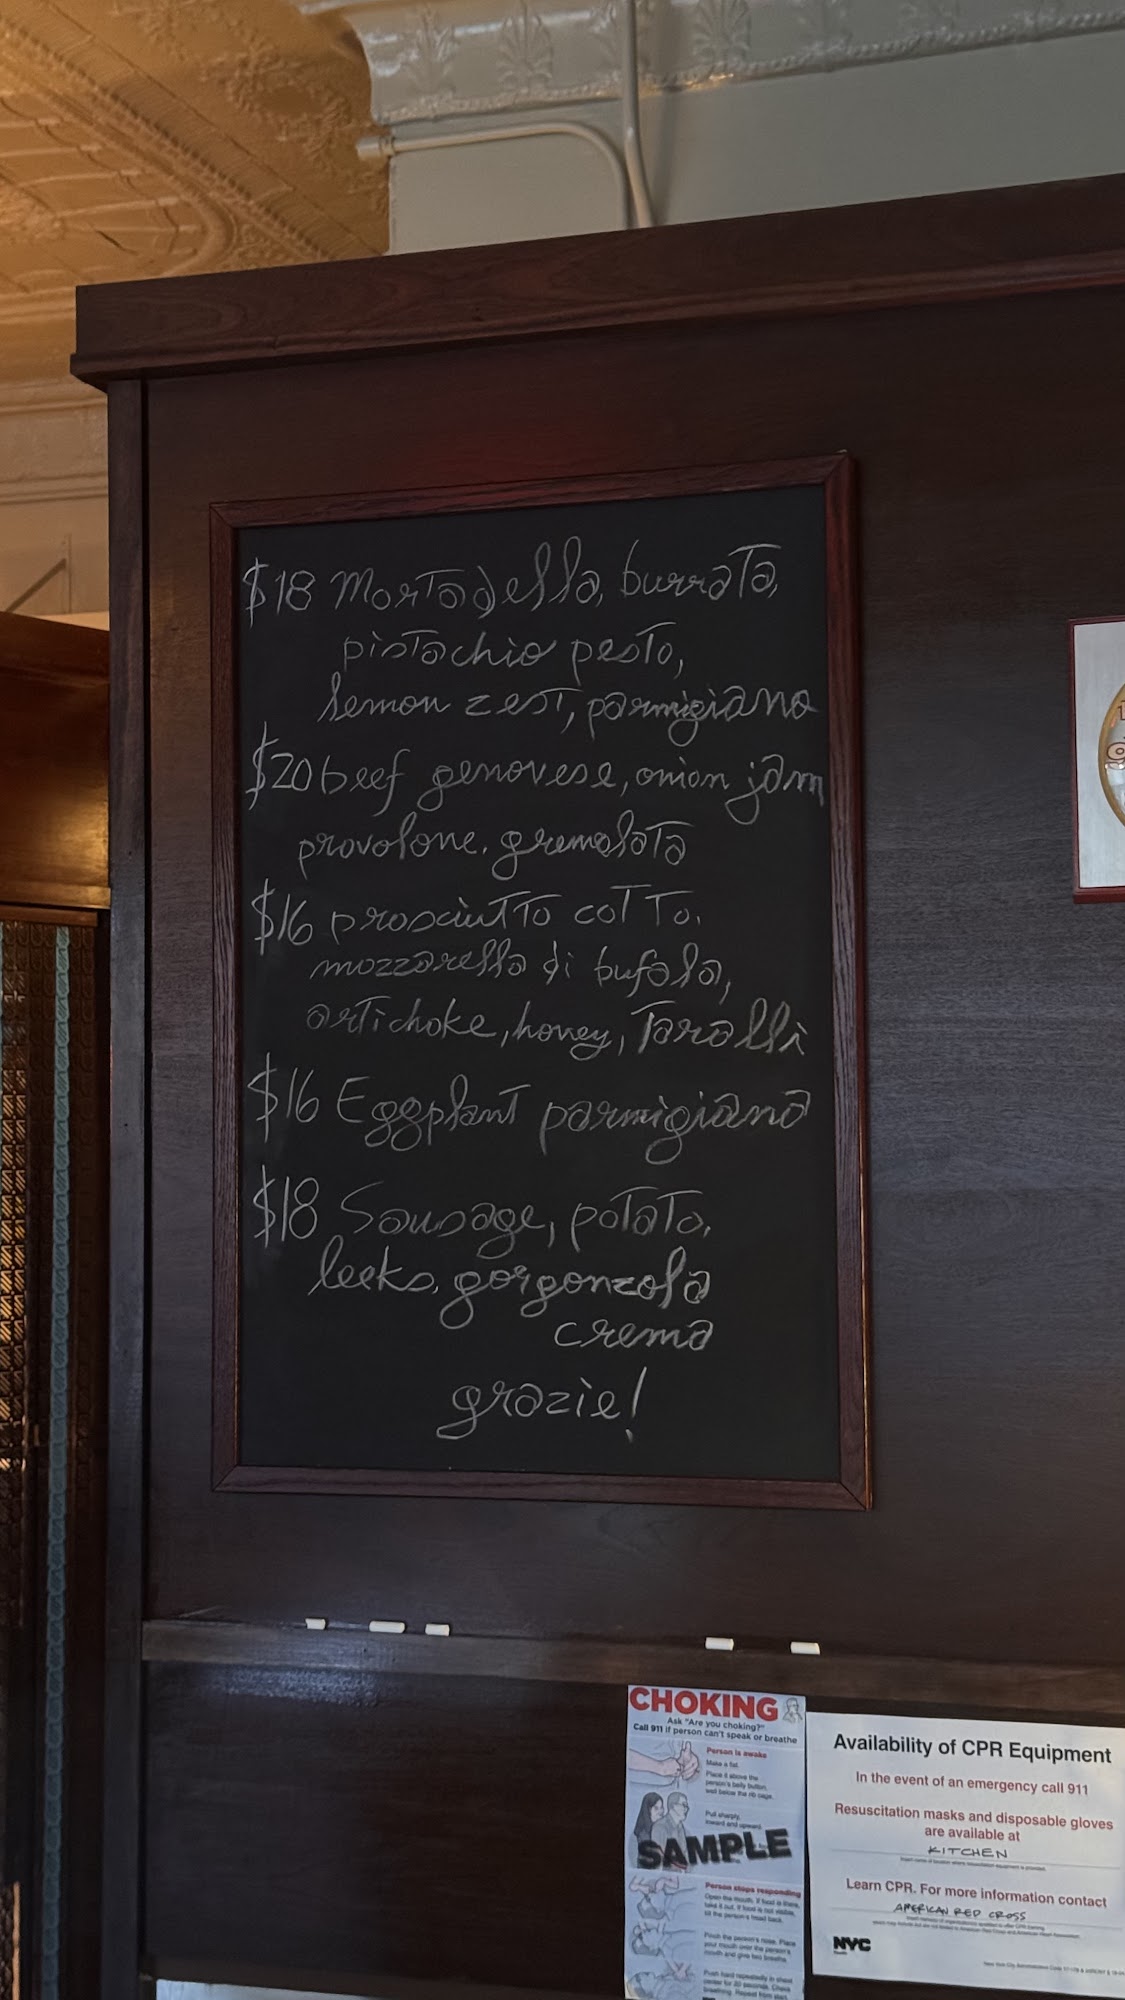 $18 Mortadella, burrata,
pistachio pesto,
lemon zest, parmigiano
$20 beef genovese, onion jam
provolone, gremolata
$16 prosciutto cotto,
mozzarella di bufala,
artichoke, honey, Taralli
$16 Eggplant parmigiana
$18 Sausage, potato,
leeks, gorgonzola
crema
grazie!
CHOKING
Ask "Are you choking?"
Call 911 if person can't speak or breathe
Person is awake
Make a fist.
Place it above the
person's belly button,
well below the rib cage.
Pull sharply,
inward and upward.
SAMPLE
Person stops responding
Open the mouth. If food is there,
take it out. If food is not visible,
tilt the person's head back.
Pinch the person's nose. Place
your mouth over the person's
mouth and give two breaths.
Push hard repeatedly in chest
center for 20 seconds. Check
breathing. Repeat from start.
Availability of CPR Equipment
In the event of an emergency call 911
Resuscitation masks and disposable gloves
are available at
KITCHEN
Learn CPR. For more information contact
AMERICAN RED CROSS
NYC